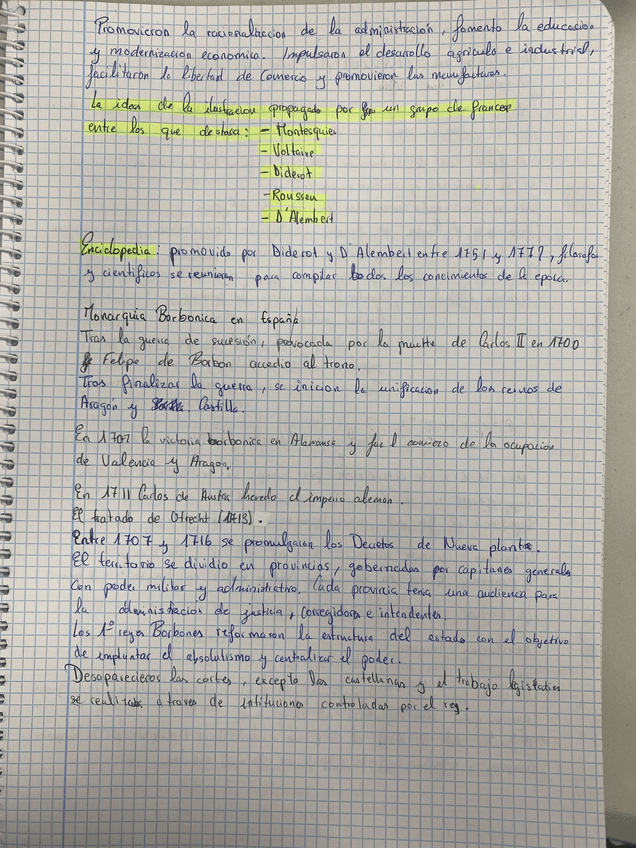 Promovieron la racionalizacion de la administración, fomento la educacion
y modernizacion economica. Impulsaron el desarollo agricula e industrial,
facilitaron la libertad de Comercio y promovieron las manufacturas.
La ideas de la ilustracion propagado por un grupo de frances
entre los que destaca: - Montesquieu
- Voltaire
- Diderot
- Rousseu
- D'Alembert
Enciclopedia: promovido por Diderot y D'Alembert entre 1751 y 1772, filosofos
y cientificos se reunieron para compilar todos los concimientos de la epoca.
Monarquia Borbonica en España
Tras la guerra de sucesión, provocada por la muerte de Carlos II en 1700
Felipe de Borbon accedio al trono.
Tras finalizar la guerra, se inicion la unificacion de los reinos de
Aragón y Castilla.
En 1707 la victoria borbonica en Almansa y fue l comiezo de la ocupacion
de Valencia y Aragon.
En 1711 Carlos de Austria heredo el imperio aleman.
El tratado de Utrecht (1713).
Entre 1707 y 1716 se promulgaron los Decretos de Nueva planta.
El territorio se dividio en provincias, gobernadas por capitanes generals
Con poder militar y administrativo. Cada provincia tenia una audiencia para
la administracion de justicia, corregidores e intendentes.
Los 1º reyes Borbones reformaron la estructura del estado con el objetivo
de implantar el absolutismo y centralizar el poder.
Desaparecieros las cortes, excepto las castellanas y el trabajo legislativo
se realizaba a traves de intituciones controladas por el rey.